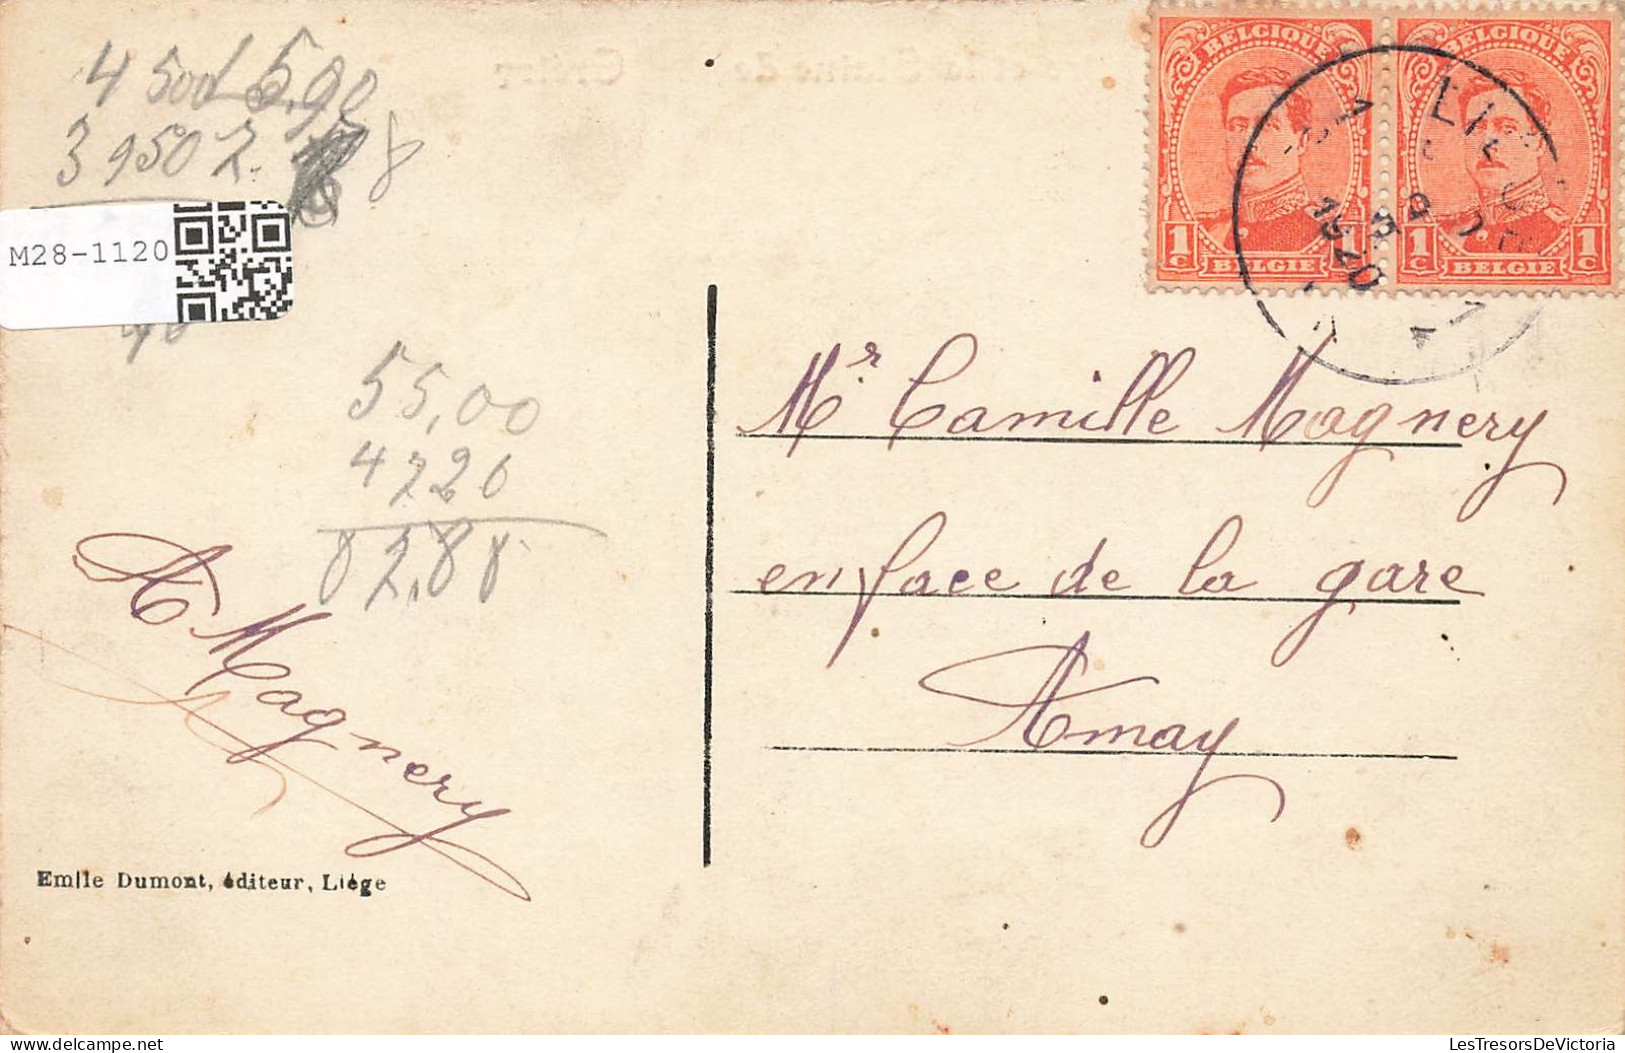 4 500 5,90
3 950 7. 8
M28-1120
55,00
4 7 2 6
82,88
A Magnery
Emile Dumont, éditeur, Liège
BELGIQUE
1 c BELGIE 1 c
BELGIQUE
1 c BELGIE 1 c
1920
Mr Camille Magnery
en face de la gare
Amay
delcampe.net
LesTresorsDeVictoria